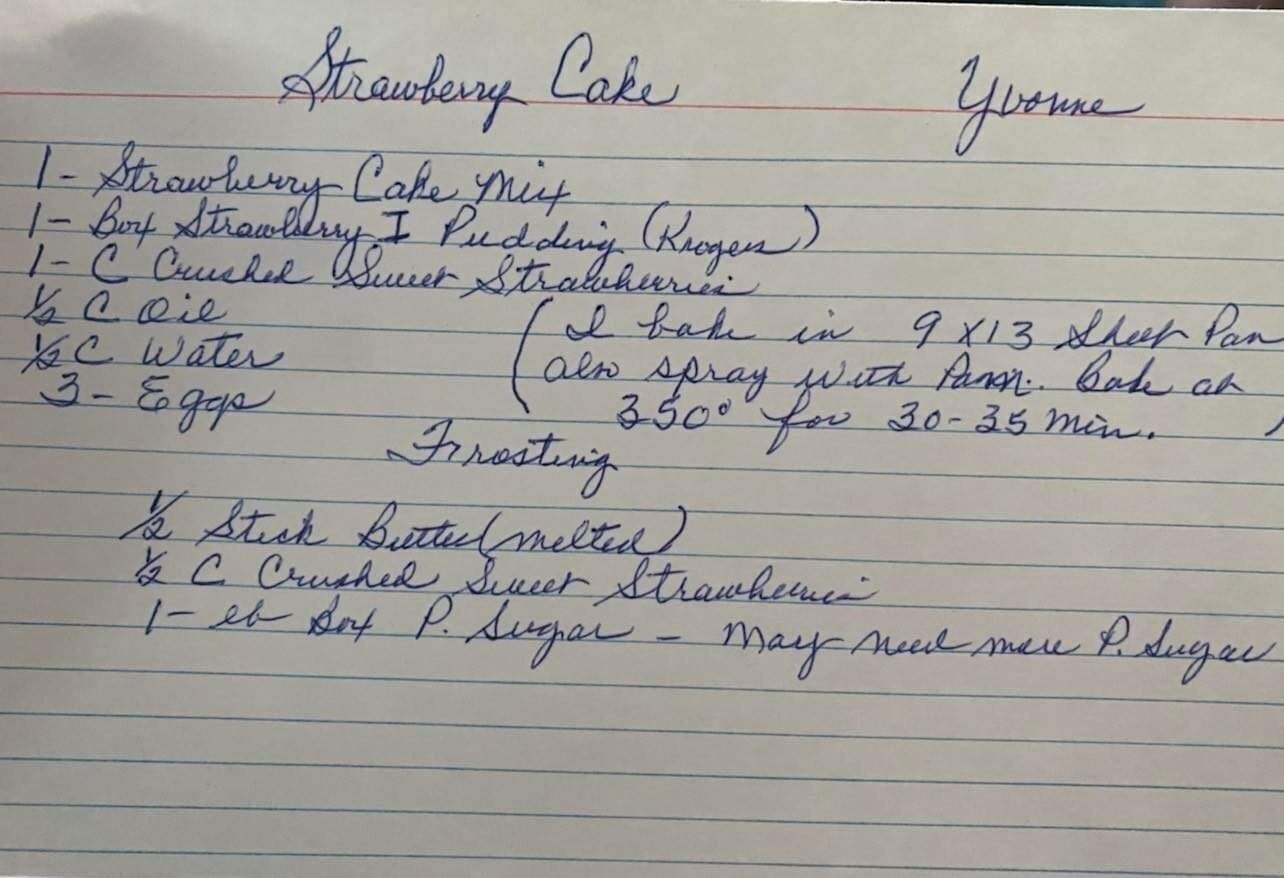 Strawberry Cake Yvonne
1- Strawberry Cake Mix
1- Box Strawberry I Pudding (Krogers)
1- C Crushed Sweet Strawberries
1/2 C Oil
1/2 C Water
3- Eggs
(I bake in 9 X 13 Sheet Pan
also spray with Pam. Bake at
350° for 30-35 min.)
Frosting
1/2 Stick Butter (melted)
1/2 C Crushed Sweet Strawberries
1- lb Box P. Sugar - May need more P. Sugar